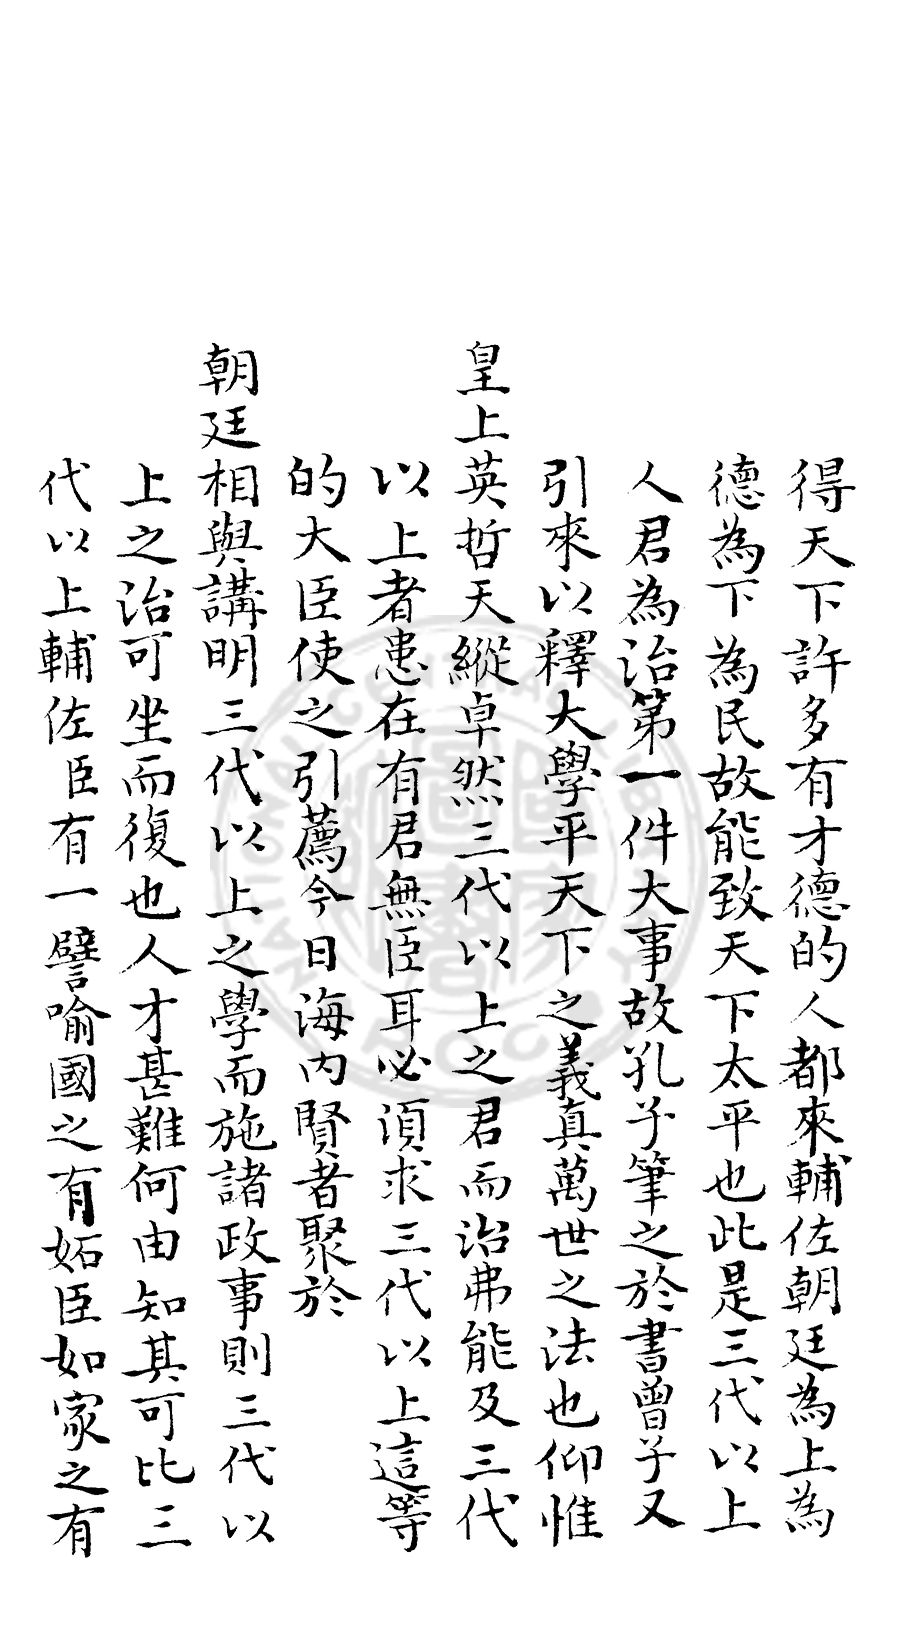 得天下許多有才德的人都來輔佐朝廷為上為
德為下為民故能致天下太平也此是三代以上
人君為治第一件大事故孔子筆之於書曾子又
引來以釋大學平天下之義真萬世之法也仰惟
皇上英哲天縱卓然三代以上之君而治弗能及三代
以上者患在有君無臣耳必須求三代以上這等
的大臣使之引薦今日海內賢者聚於
朝廷相與講明三代以上之學而施諸政事則三代以
上之治可坐而復也人才甚難何由知其可比三
代以上輔佐臣有一譬喻國之有妬臣如家之有